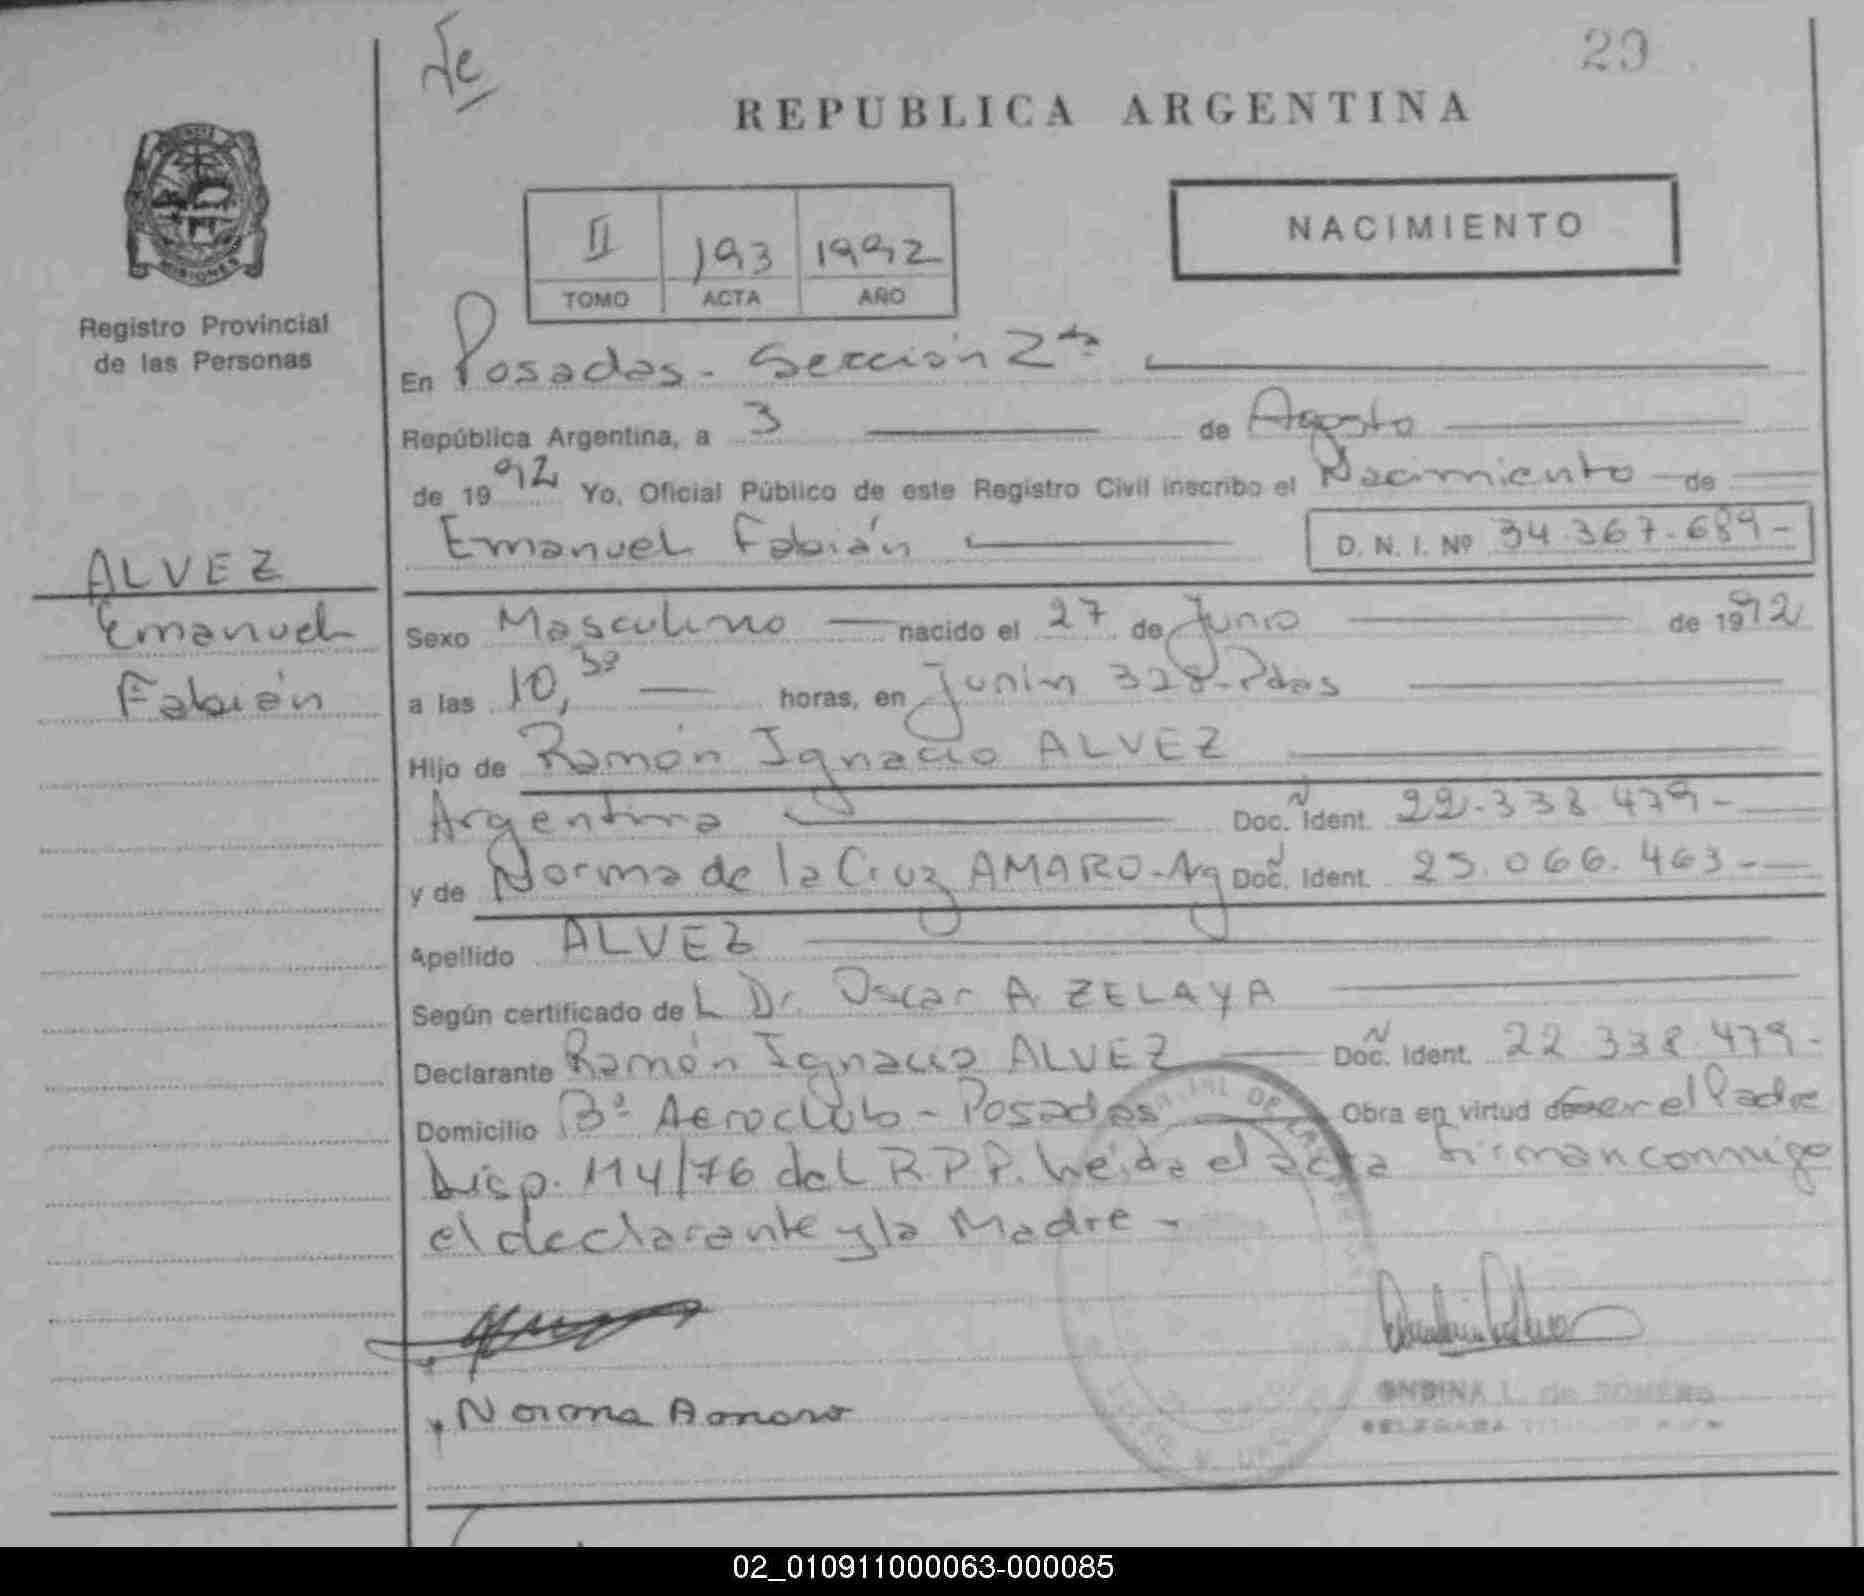 29
REPUBLICA ARGENTINA
MISIONES
Registro Provincial
de las Personas
II 193 1992
TOMO ACTA AÑO
NACIMIENTO
En Posadas - Sección 2da
República Argentina, a 3 de Agosto
de 1992 Yo, Oficial Público de este Registro Civil inscribo el Nacimiento de
Emanuel Fabián D. N. I. Nº 34.367.689-
ALVEZ
Emanuel
Fabián
Sexo Masculino nacido el 27 de Junio de 1992
a las 10,30 horas, en Junín 328-Pdas
Hijo de Ramón Ignacio ALVEZ
Argentina Doc. Ident. 22.338.479-
y de Norma de la Cruz AMARO-Arg Doc. Ident. 25.066.463-
Apellido ALVEZ
Según certificado del Dr. Oscar A. ZELAYA
Declarante Ramón Ignacio ALVEZ Doc. Ident. 22.338.479-
Domicilio Bº Aeroclub - Posadas Obra en virtud de ser el Padre
Disp. 114/76 del R.P.P. Leída el acta firman conmigo
el declarante y la Madre -
Norma Amaro
ONDINA L. de ROMERO
02_010911000063-000085